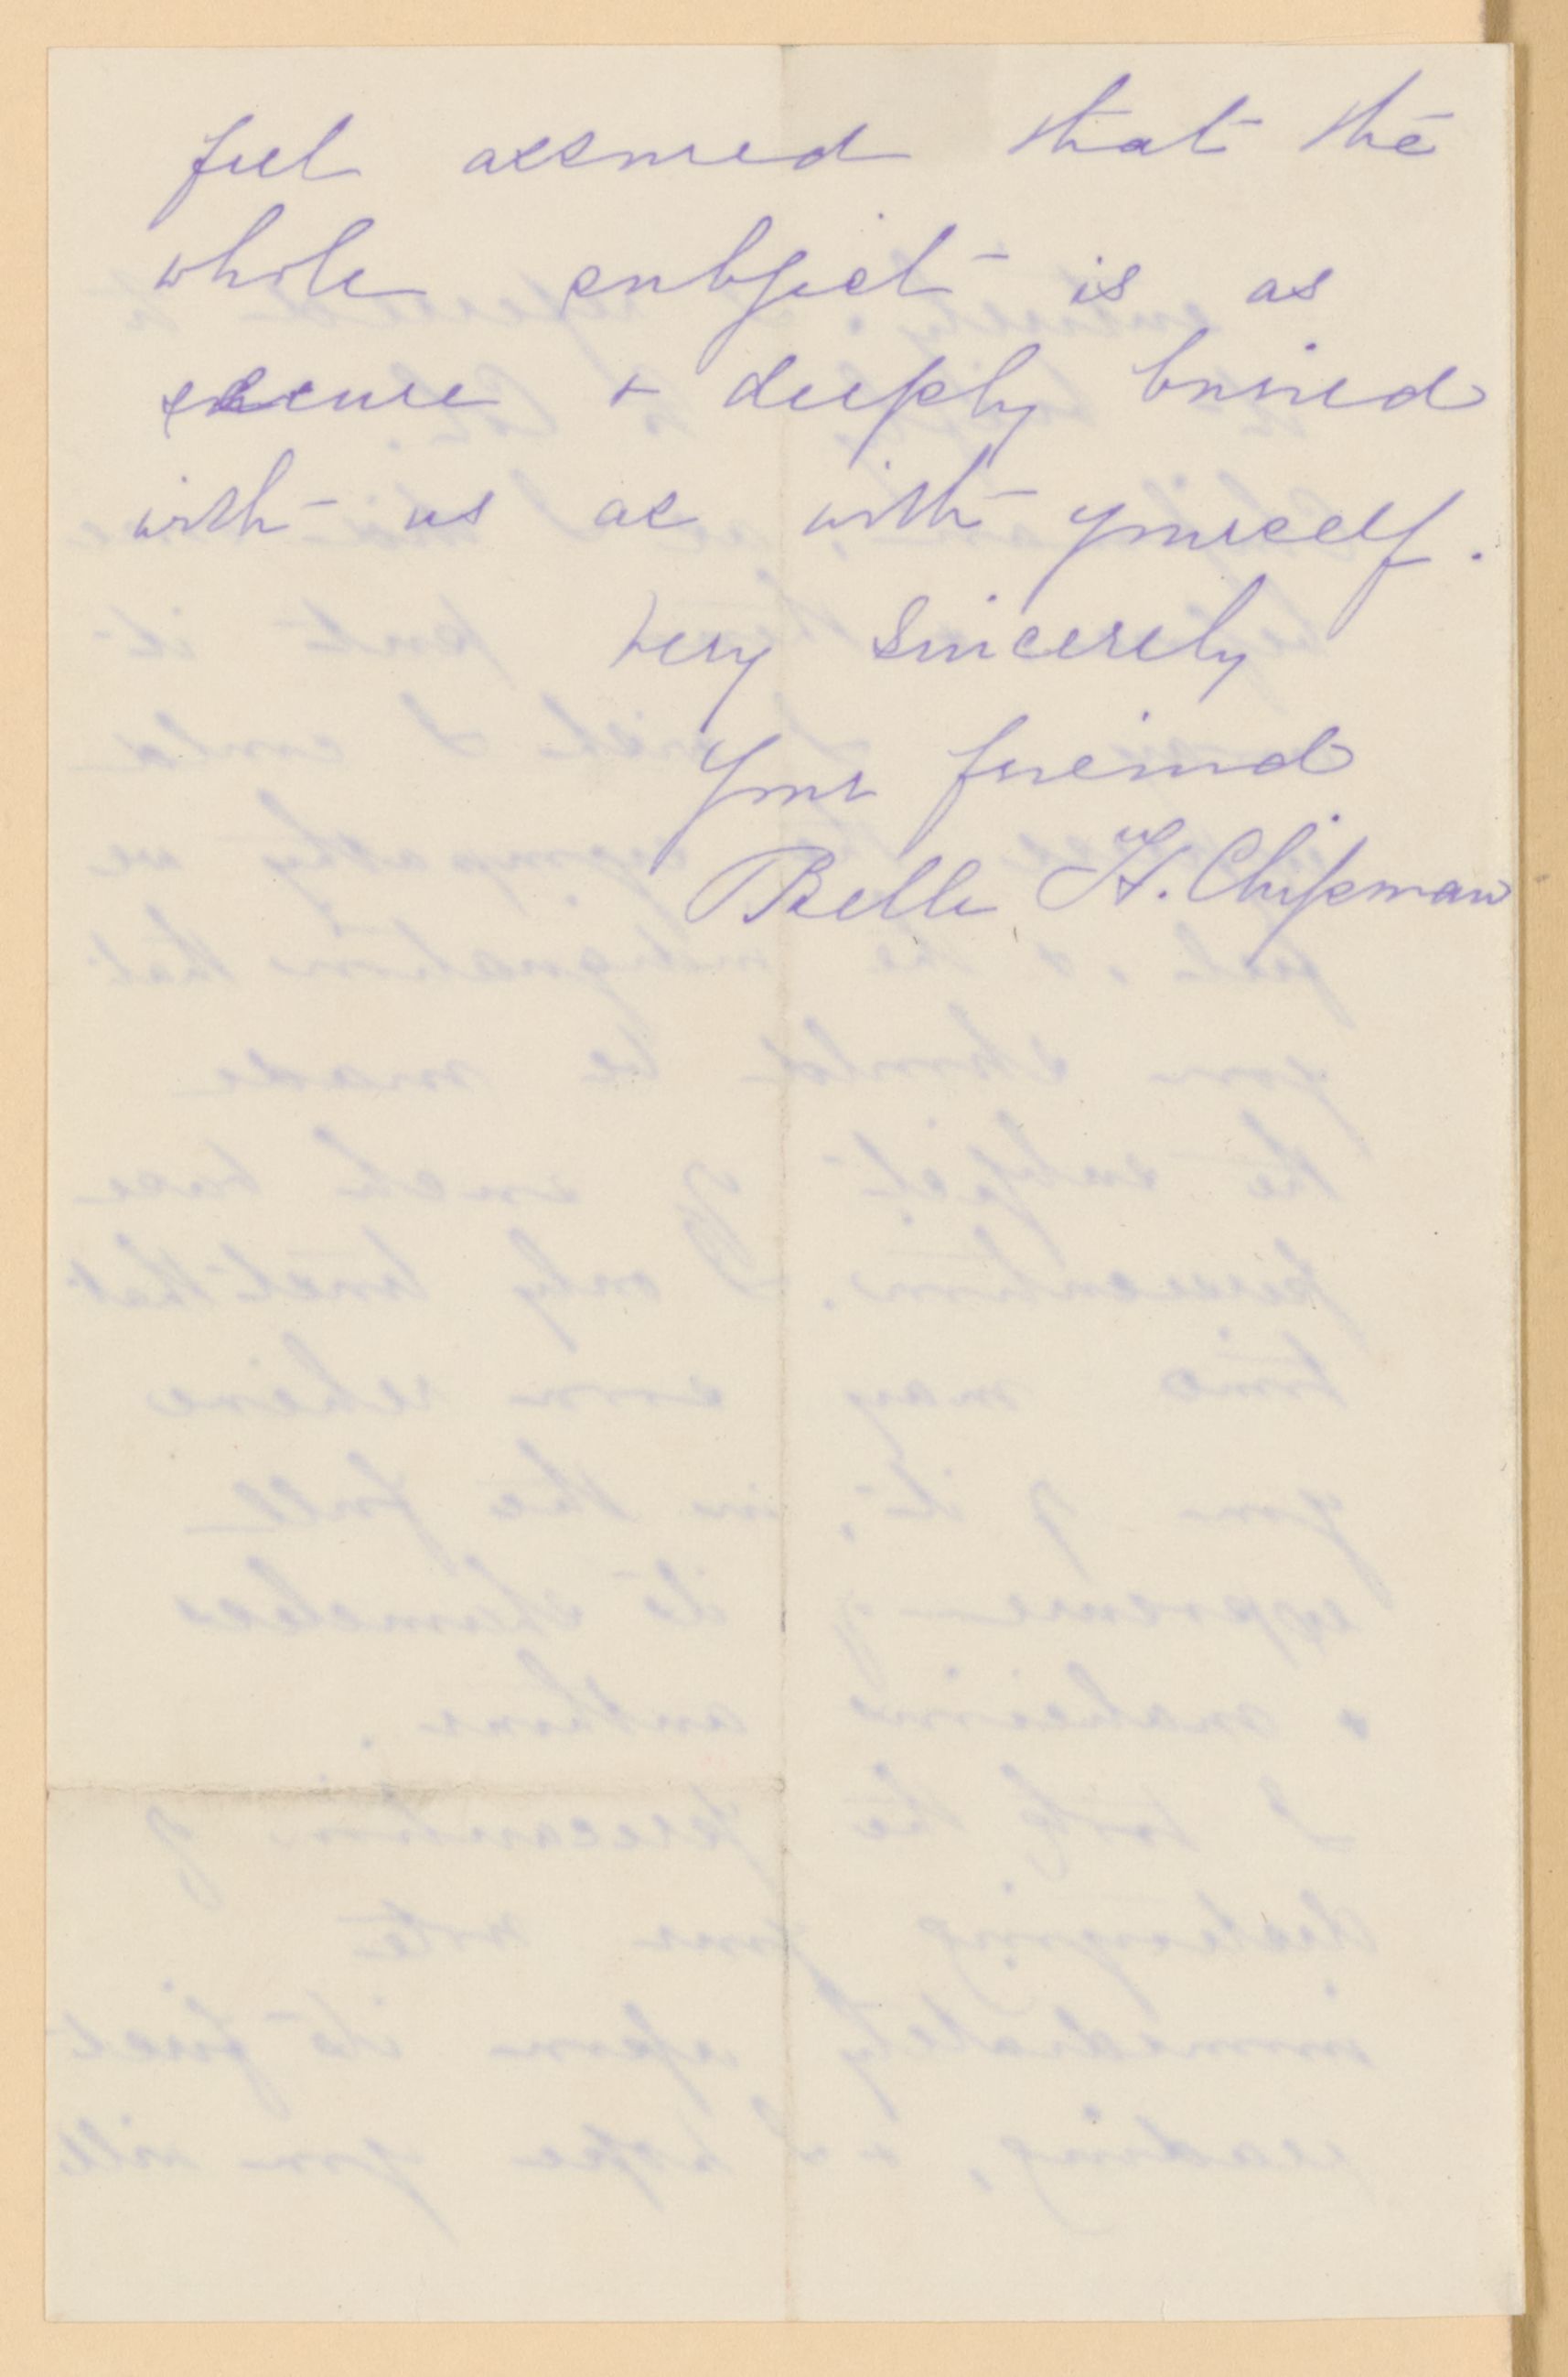 feel assured that the
whole subject is as
secure + deeply buried
with us as with yourself.
Very sincerely
Your friend
Belle H. Chipman